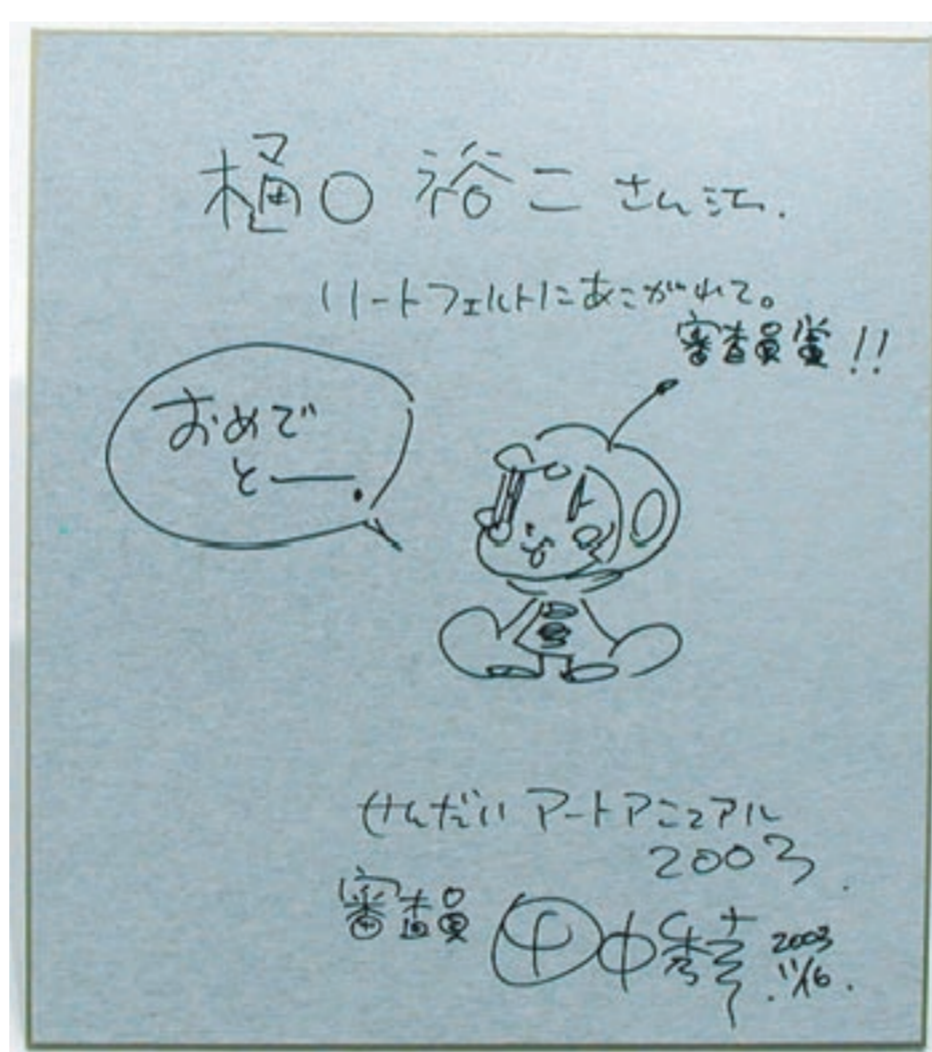 樋口 裕二 さん江.
リートフェルトにあこがれて。
審査員賞!!
おめで
とー.
せんだいアートアニュアル
2003.
審査員 田中秀幸 2003
11/16.